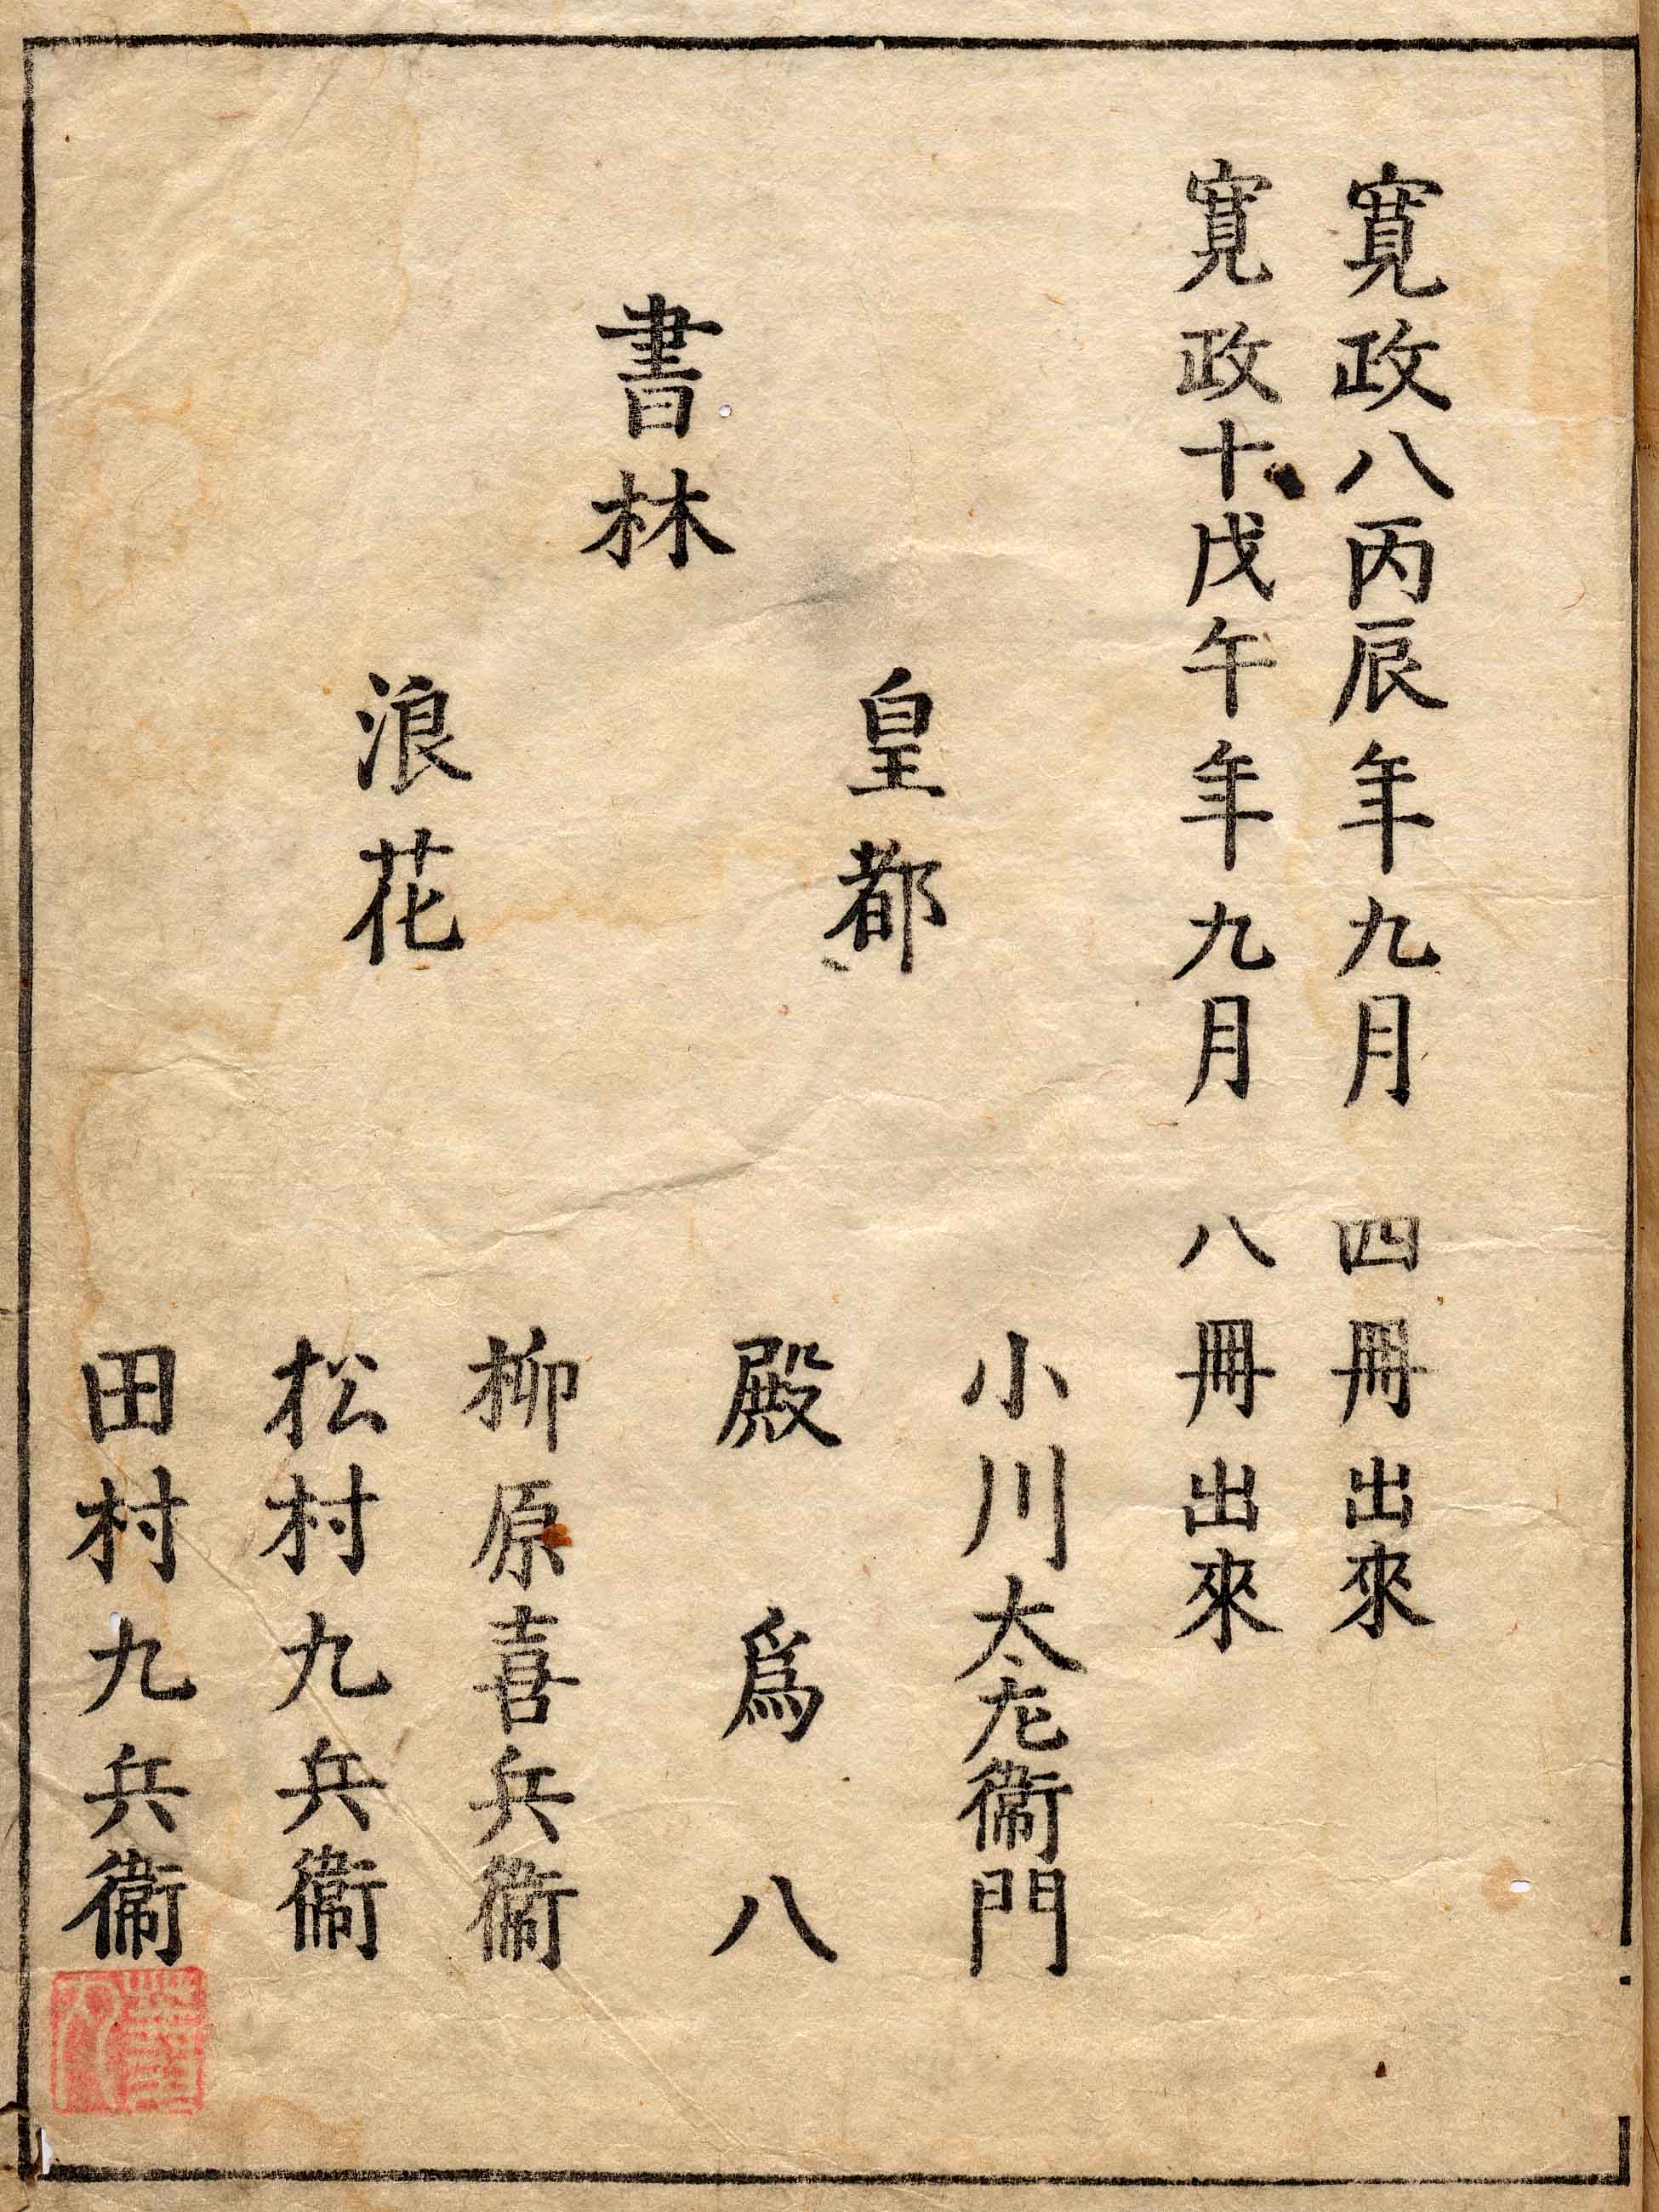 寛政八丙辰年九月 四冊出來
寛政十戊午年九月 八冊出來
書林
皇都
小川太左衞門
殿爲八
浪花
柳原喜兵衞
松村九兵衞
田村九兵衞